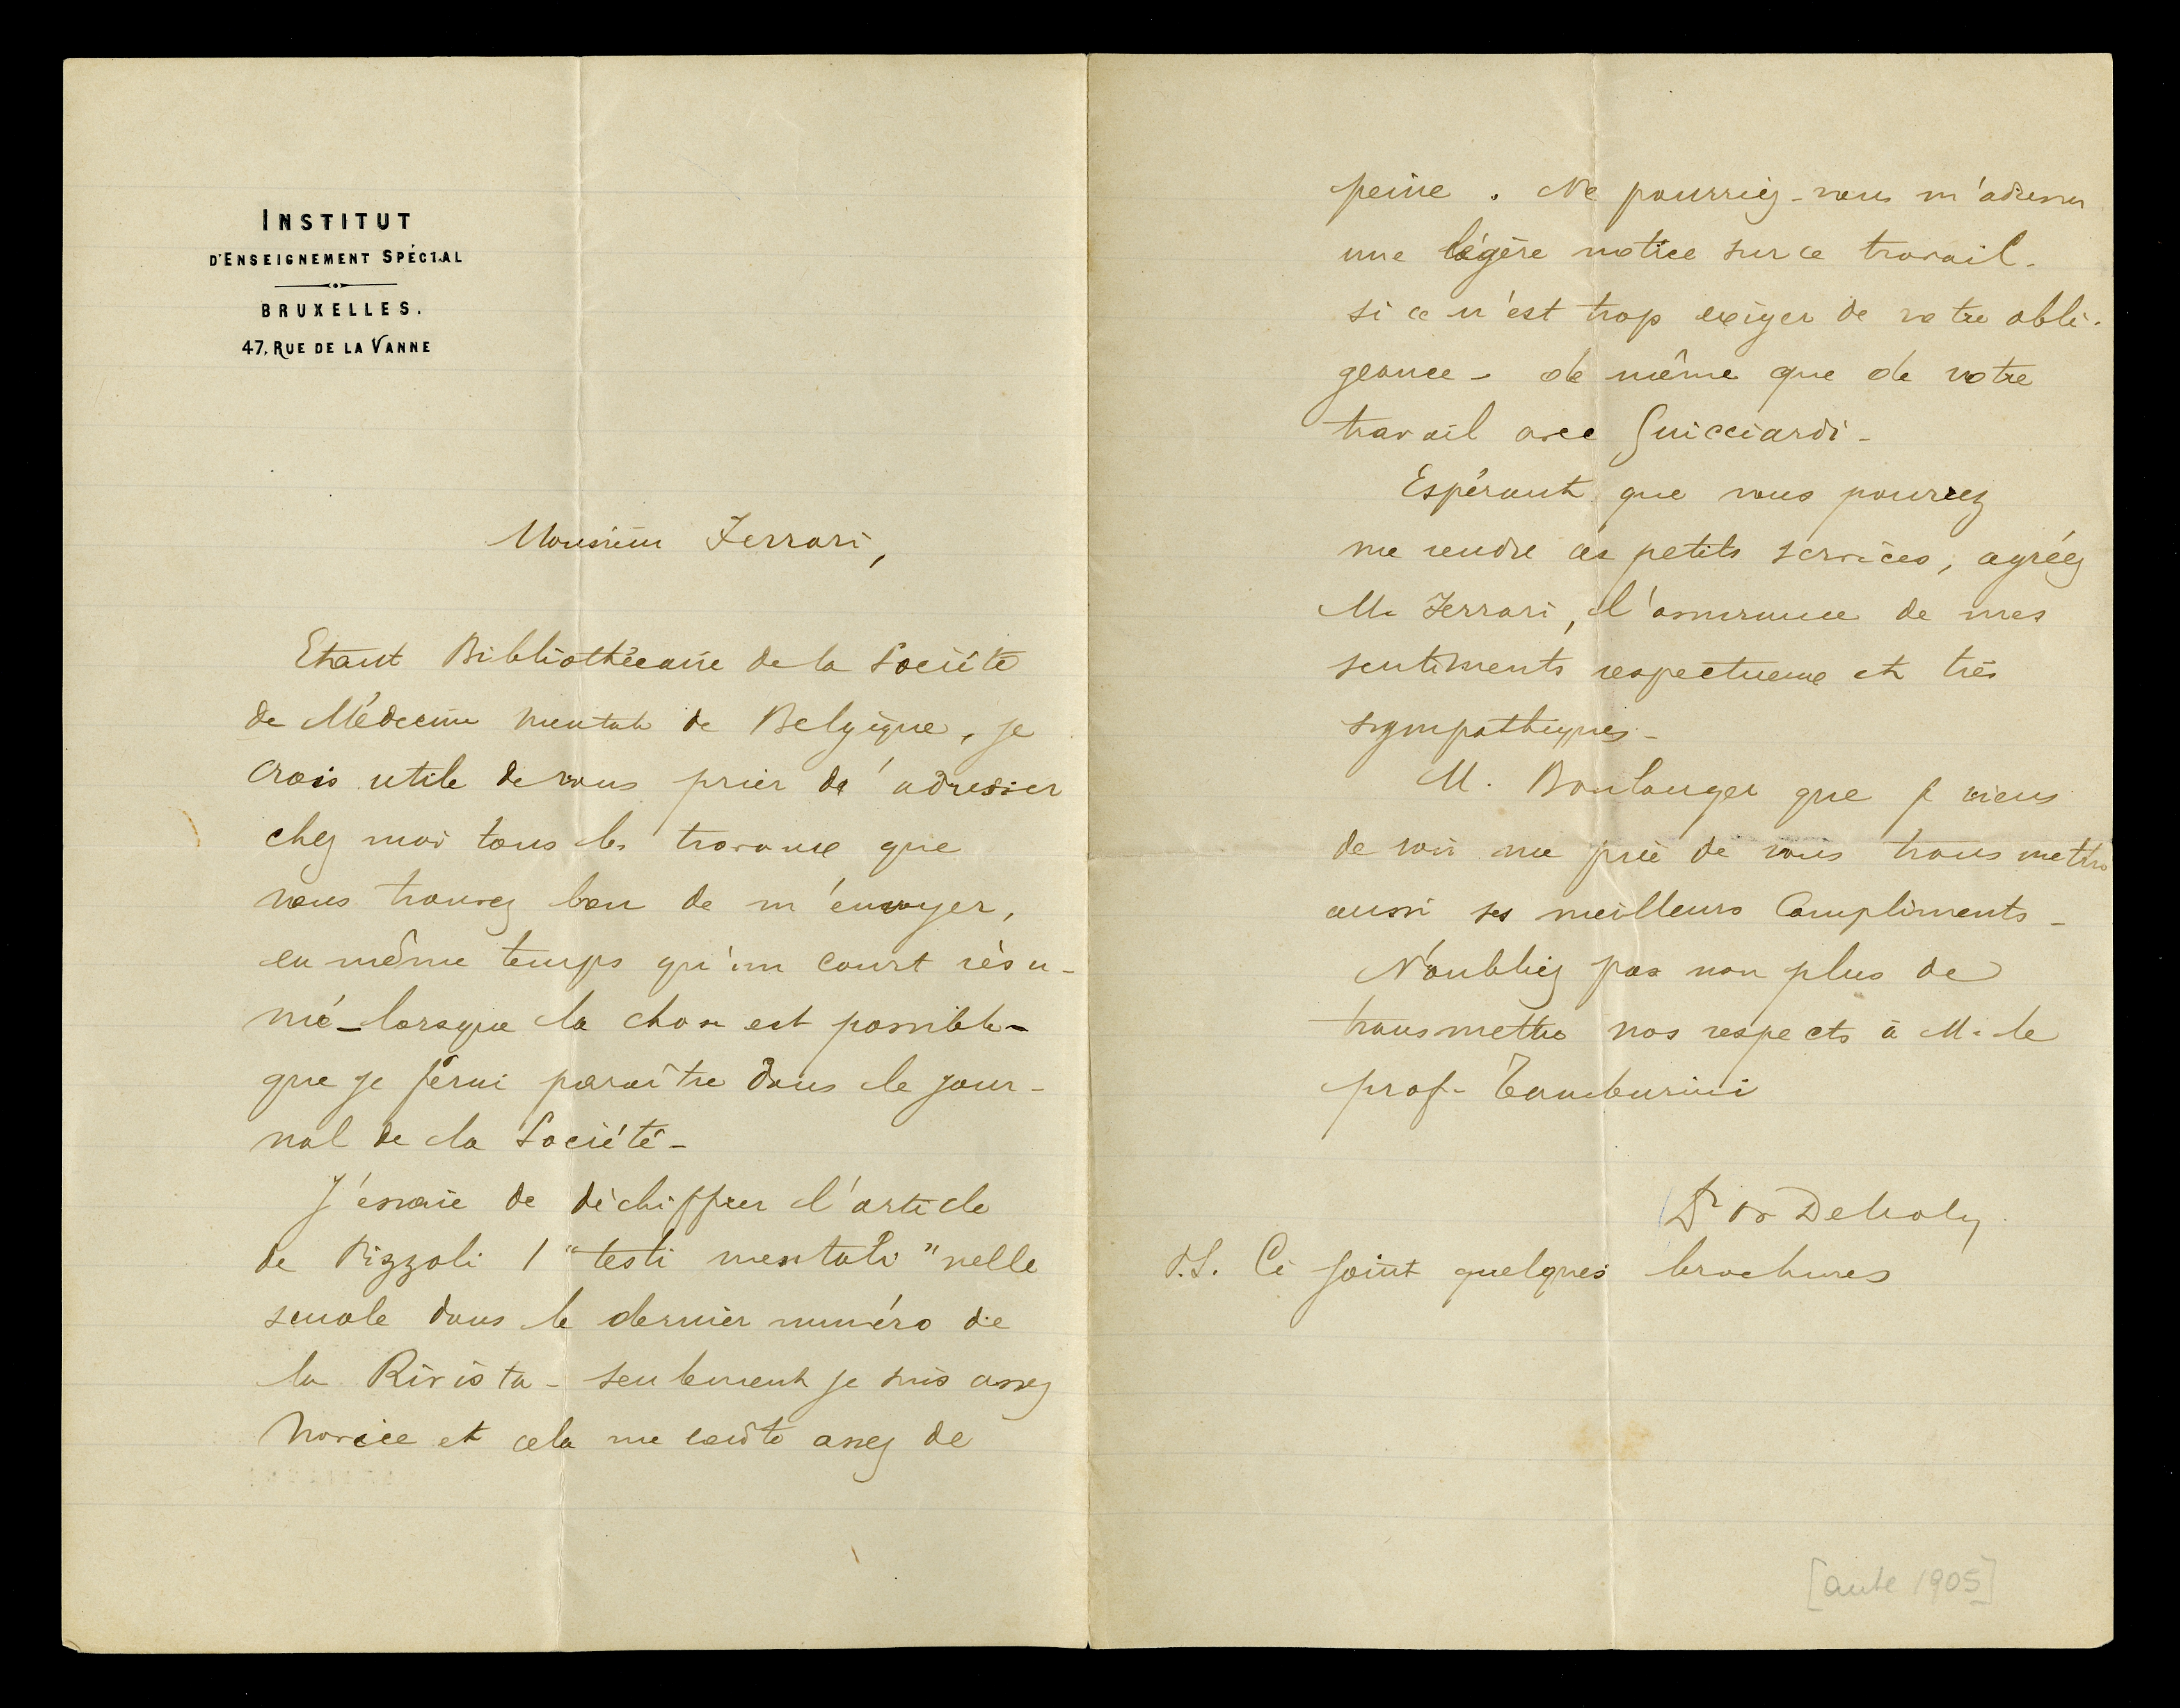 INSTITUT
D'ENSEIGNEMENT SPÉCIAL
BRUXELLES.
47, RUE DE LA VANNE
Monsieur Ferrari,
Etant Bibliothécaire de la Société
de Médecine mentale de Belgique, je
crois utile de vous prier de adresser
chez moi tous les travaux que
vous trouvez bon de m'envoyer,
en même temps qu'un court résu-
mé - lorsque la chose est possible -
que je ferai paraître dans le jour-
nal de la Société -
J'essaie de déchiffrer l'article
de Pizzoli I "testi mentali" nelle
scuole dans le dernier numéro de
la Rivista - seulement je suis assez
novice et cela me coûte assez de
peine. Ne pourriez-vous m'adresser
une légère notice sur ce travail -
si ce n'est trop exiger de votre obli-
geance - de même que de votre
travail avec Guicciardi -
Espérant que vous pourrez
me rendre ces petits services, agréez
M. Ferrari, l'assurance de mes
sentiments respectueux et très
sympathiques -
M. Boulanger que je viens
de voir me prie de vous transmettre
aussi ses meilleurs compliments -
N'oubliez pas non plus de
transmettre nos respects à M. le
prof. Tamburini
Dr Decroly
P.S. Ci joint quelques brochures
[ante 1905]